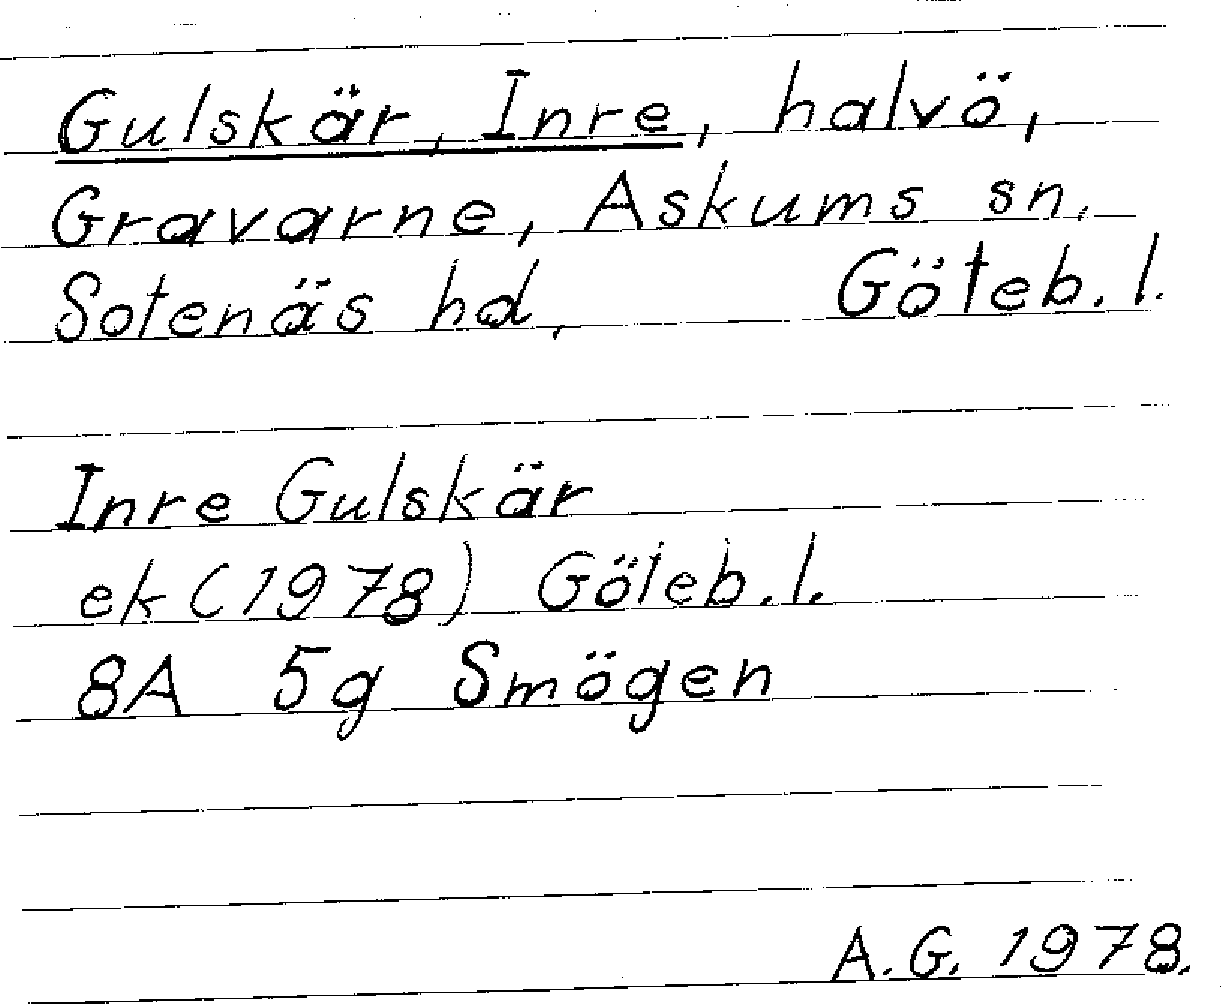 Gulskär, Inre, halvö,
Gravarne, Askums sn,
Sotenäs hd, Göteb. l.
Inre Gulskär
ek (1978) Göteb. l.
8A 5g Smögen
A.G. 1978.